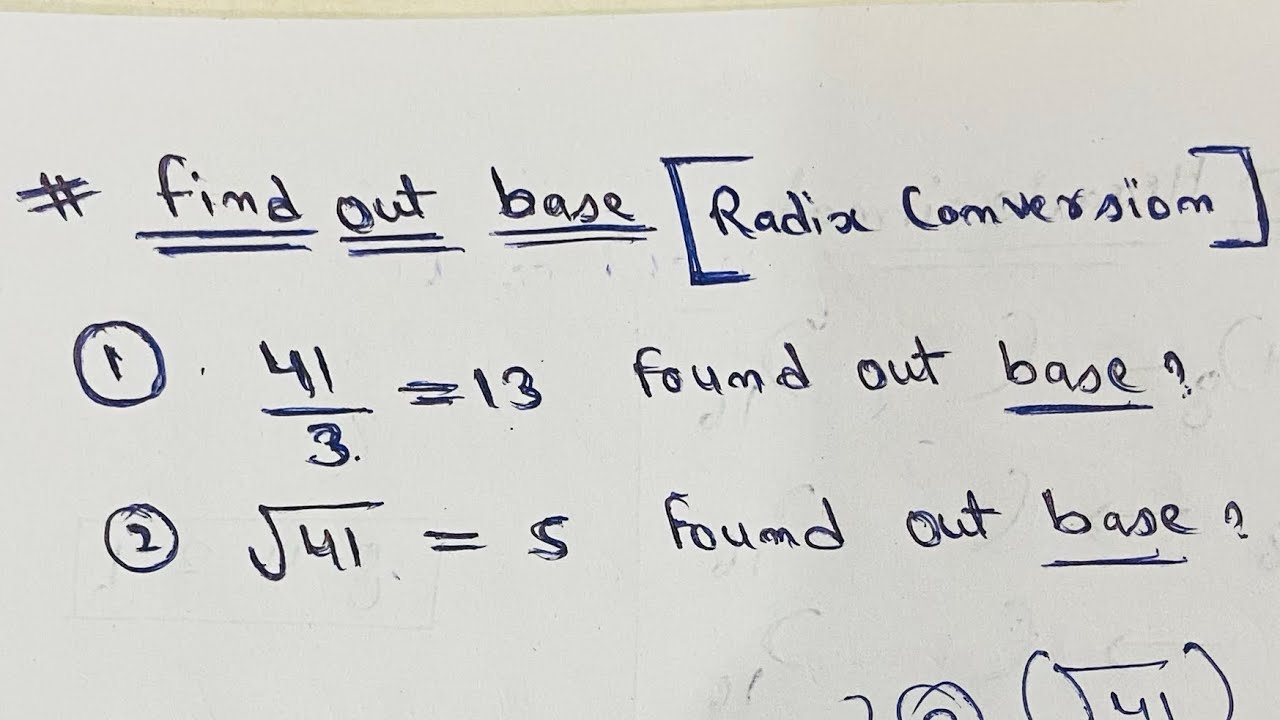 # find out base [Radix Conversion]
① 41/3 = 13 found out base?
② √41 = 5 found out base?
(√41)